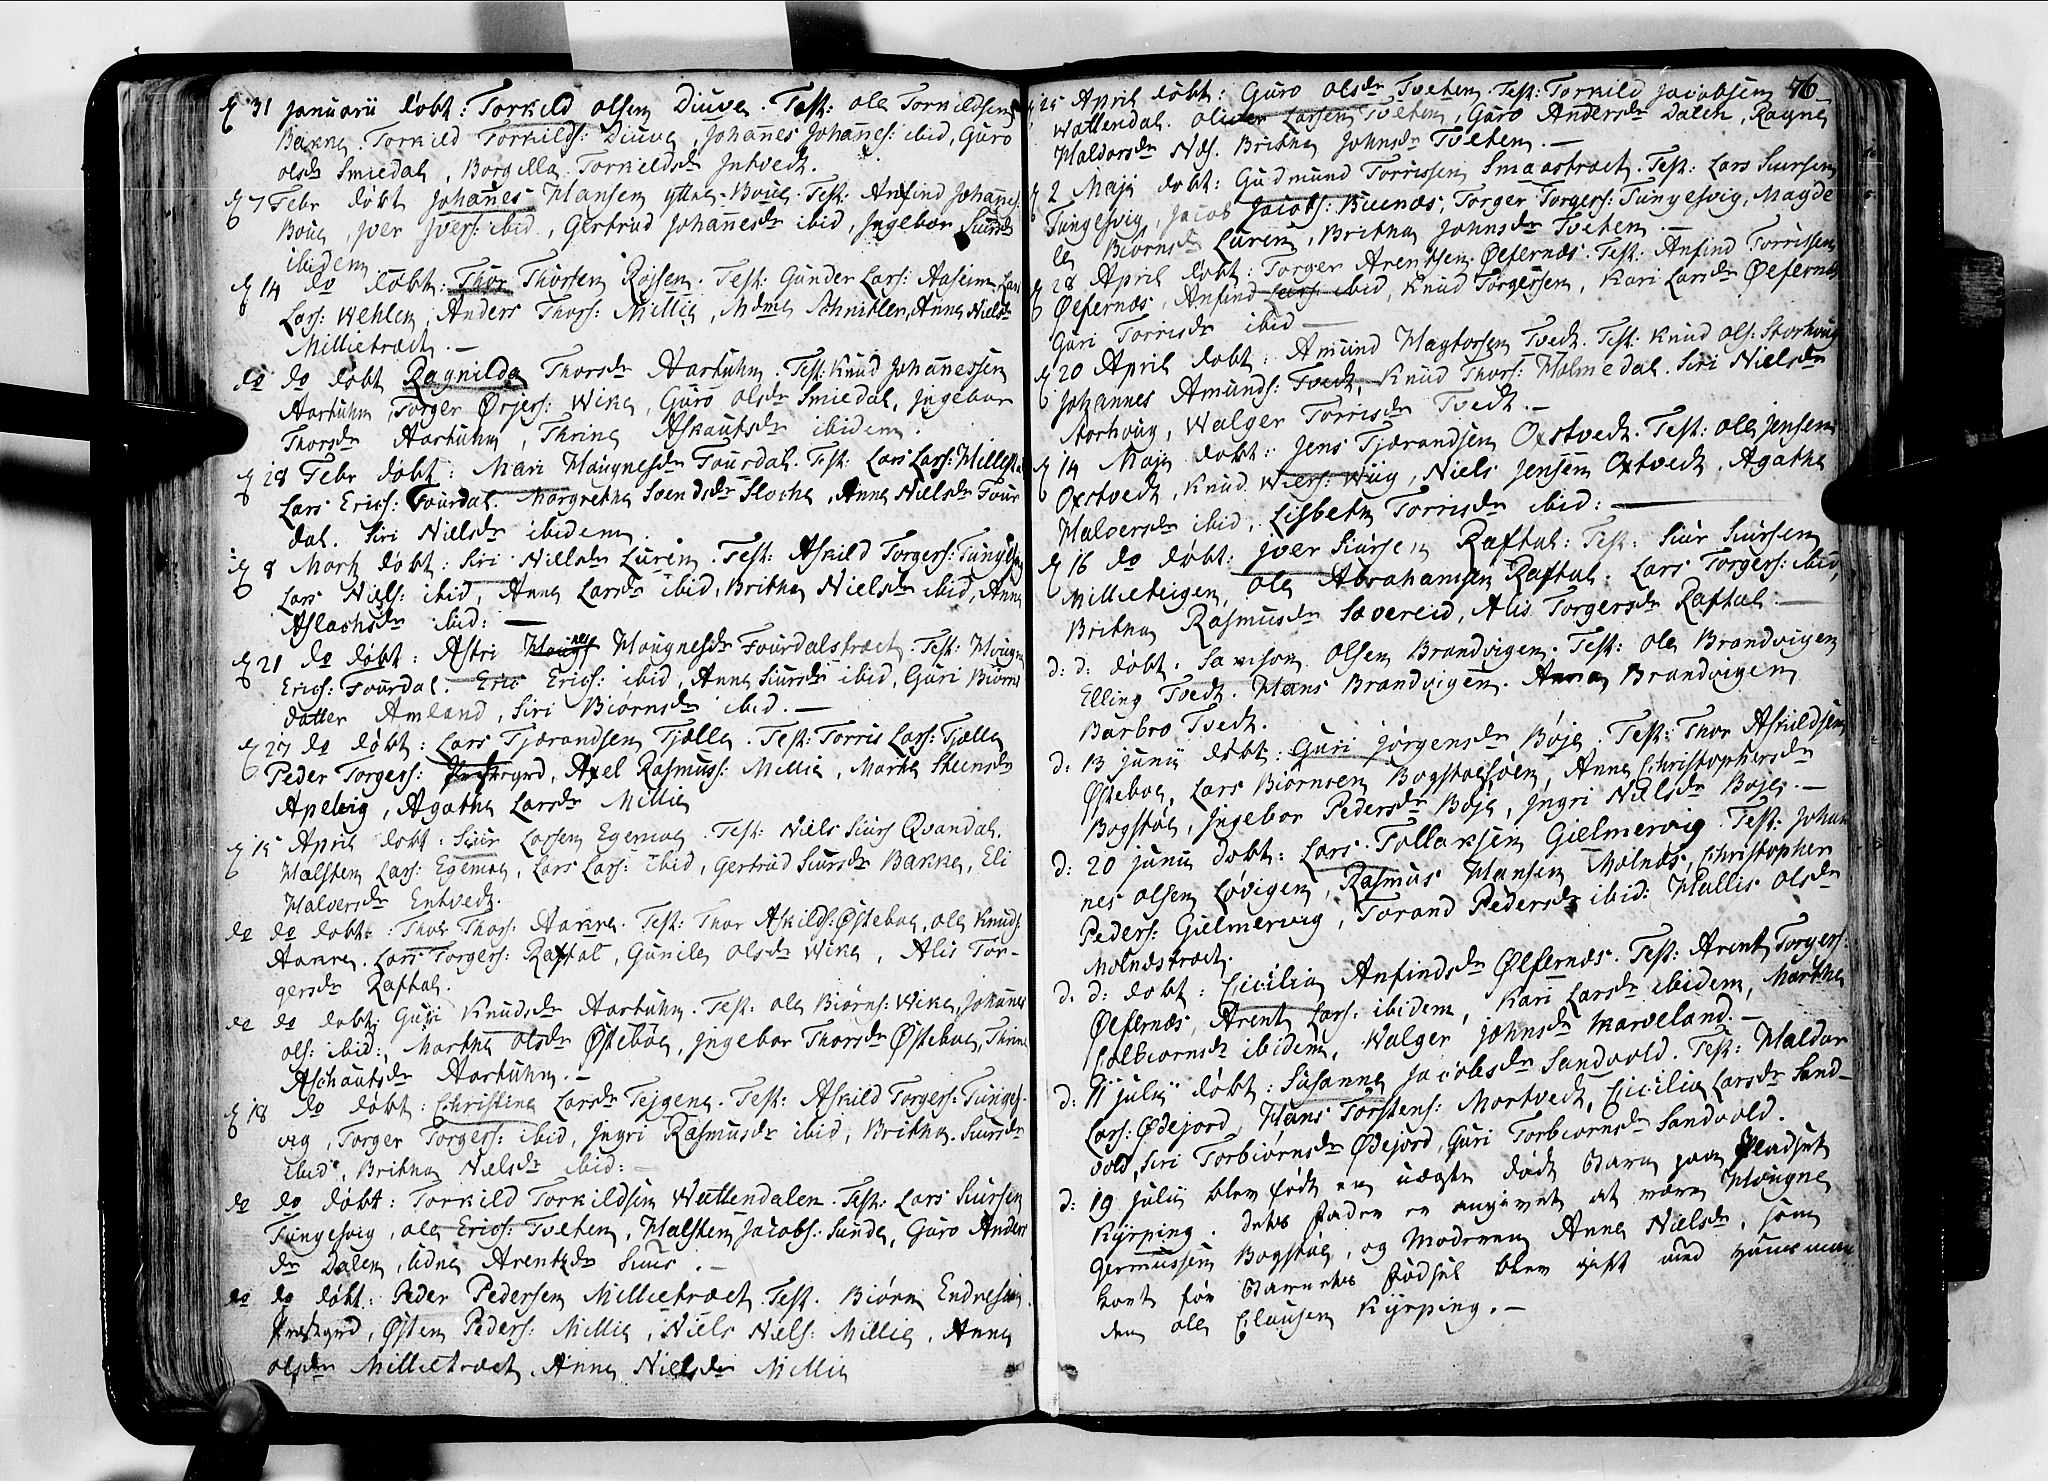 d 31 Januarii døbt: Torkild Olsen Diuve. Test: Ole Torkildsen
Bakke. Torkild Torkilds: Diuve, Johannes Johañes: ibid, Guro
olsdr Smiedal, Borgilla Torkildsdr Jntvedt.
d 7 Febr døbt Johañes Hansen yttre-Boue. Test: Anfind Johañes:
Boue, Jver Jvers: ibid, Gertrud Johañesdr ibid, Jngebor Siursdr
ibidem
d 14 do døbt: Thor Thorsen Røssen. Test: Gunder Lars: Aaseim, Lars
Lars: Wehlen, Anders Thors: Millie, Mdme Schnitler, Anne Nielsdr
Millietræet. –
do do døbt Ragnilde Thorsdr Aartuhn. Test: Knud Johanessen
Aartuhn, Torger Ørjers: Wike, Guro olsdr Smiedal, Jngebor
Thorsdr Aartuhn, Thrine Askautsdr ibidem.
d 28 Febr døbt: Mari Mougnesdr Fourdal. Test: Lars Lars: Millest:
Lars Erics: Fourdal. Margrethe Svendsdr Stoche, Anne Nielsdr Four
dal. Siri Nielsdr ibidem.
d 8 Marti døbt: Siri Nielsdr Luren. Test: Askild Torgers: Tungesvig
Lars Niels: ibid, Anne Larsdr ibid, Brithe Nielsdr ibid, Anne
Aslachsdr ibid: –
d 21 do døbt: Astri Mougnesdr Fourdalstræet. Test: Mougne
Erics: Fourdal. Eric Erics: ibid, Anne Siursdr ibid, Guri Biørns
datter Amland, Siri Biørnsdr ibid. –
d 27 do døbt: Lars Tjærandsen Tjælle. Test: Torris Lars: Tjælle
Peder Torgers: Præstegrd, Axel Rasmuss: Millie, Marthe Steensdr
Apelvig, Agathe Larsdr Millie
d 15 April døbt: Siur Larsen Egemoe. Test: Niels Siurs Qvandal.
Halsten Lars: Egemoe, Lars Lars: ibid, Gertrud Siursdr Bakke, Eli
Halversdr Entvedt.
do do døbt: Thor Thors: Aakre. Test: Thor Askilds: Østeboe, ole Knuds:
Aakre. Lars Torgers: Raftal, Gunile Olsdr Wike, Alis Tor-
gersdr Raftal.
do do døbt: Guri Knudsdr Aartuhn. Test: ole Biørns: Wike, Johanes
ols: ibid:, Marthe olsdr Østeboe, Jngebor Thorsdr Østeboe, Thrine
Aschautsdr Aartuhn. –
d 18 do døbt: Christine Larsdr Tejgene. Test: Askild Torgers: Tunges-
vig, Torger Torgers: ibid, Jngri Rasmusdr ibid, Brithe Siursdr
ibid, Brithe Nielsdr ibid: –
do do døbt: Torkild Torkildsen Wattendalen. Test: Lars Siursen
Tungesvig, ole Erics: Tveten, Halsten Jacobs: Sunde, Guro Anders
dr Dalen, Udne Arentzdr Suus. –
do do døbt: Peder Pedersen Millietræet. Test. Biørn Endresen
Præstegrd, Østen Peders: Millie, Niels Niels: Millie, Anne
olsdr Millietræet, Anne Nielsdr Millie
76
d 25 April døbt: Guro Olsdr Tveten. Test: Torkild Jacobsen
Wattendal. Larsen Tveten, Guro Andersdr Dalen, Ragne
Haldorsdr Næs. Brithe Johnsdr Tveten. –
d 2 Maji døbt: Gudmund Torrissen Smaastræet. Test: Lars Siursen
Tungesvig, Jacob Jacobs: Buenæs, Torger Torgers: Tungesvig, Magde
le Biørnsdr Luren, Brithe Johnsdr Tveten. –
d 28 April døbt: Torger Arentsen Ølfernæs. Test: Anfind Torrissen
Ølfernæs, Anfind Lars: ibid, Knud Torgersen, Kari Larsdr Ølfernæs
Guri Torrisdr ibid –
d 20 April døbt: Amund Hagtorsen Tvedt. Test: Knud ols: Storhoug
Johannes Amunds: Tvedt, Knud Thors: Holmedal. Siri Nielsdr
Storhoug, Walger Torrisdr Tvedt. –
d 14 Maji døbt: Jens Tjærandsen Oxstvedt. Test: ole Jensen
Oxstvedt, Knud Wiers: Wiig, Niels Jensen Oxtvedt, Agathe
Halversdr ibid, Lisbeth Torrisdr ibid: –
d 16 do døbt: Jver Siursen Raftal: Test: Siur Siursen
Millieteigen, ole Abrahamsen Raftal. Lars Torgers: ibid,
Brithe Rasmusdr Sævereid, Alis Torgersdr Raftal. –
d: d: døbt: Samson Olsen Brandvigen. Test: ole Brandvigen
Elling Tvedt. Hans Brandvigen. Anna Brandvigen
Barbro Tvedt.
d: 13 Junii døbt: Guri Jørgensdr Bøje. Test: Thor Askildsen
Østeboe, Lars Biørnsen Bogstøesøen, Anne Christophersdr
Bogstøe, Jngebor Pedersdr Bøje, Jngri Nielsdr Bøje. –
d: 20 Junii døbt: Lars Tollaksen Gielmervig. Test: Johan
nes olsen Løvigen, Rasmus Hansen Molnæs, Christopher
Peders: Gielmervig, Torand Pedersdr ibid: Hallis olsdr
Molnæstræet.
d. d: døbt: Cicilie Anfindsdr Ølfernæs. Test: Arent Torgers:
Ølfernæs, Arent Lars: ibidem, Kari Larsdr ibidem, Marthe
Colbiørnsdr ibidem, Walger Johnsdr Markeland. –
d: 11 Julii døbt: Susanne Jacobsdr Sandvold. Test: Haldor
Lars: Ødejord, Hans Torstens: Mortvedt, Cicilie Larsdr Sand-
vold, Siri Torbiørnsdr Ødejord, Guri Torbiørnsdr Sandvold.
d: 19 Julii blev født en uægte død Barn paa Pladset
Kyrping. dets Fader er angivet at være Mougne
Germussen Bogstøe, og Moderen Anne Nielsdr, som
kort før Barnets Fødsel blev gift med
den ole Clausen Kyrping. –